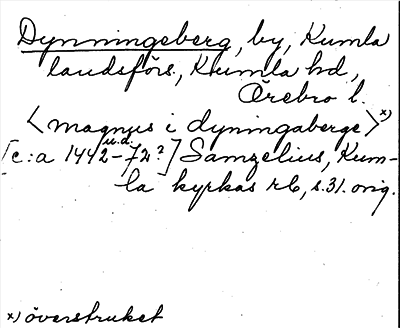 Dynningeberg, by, Kumla
landsförs., Kumla hd,
Örebro l.
<magnus i dyningaberge> x)
[c:a 1442 u.d. –72?] Samzelius, Kum-
la kyrkas rb, s. 31. orig.
x) överstruket